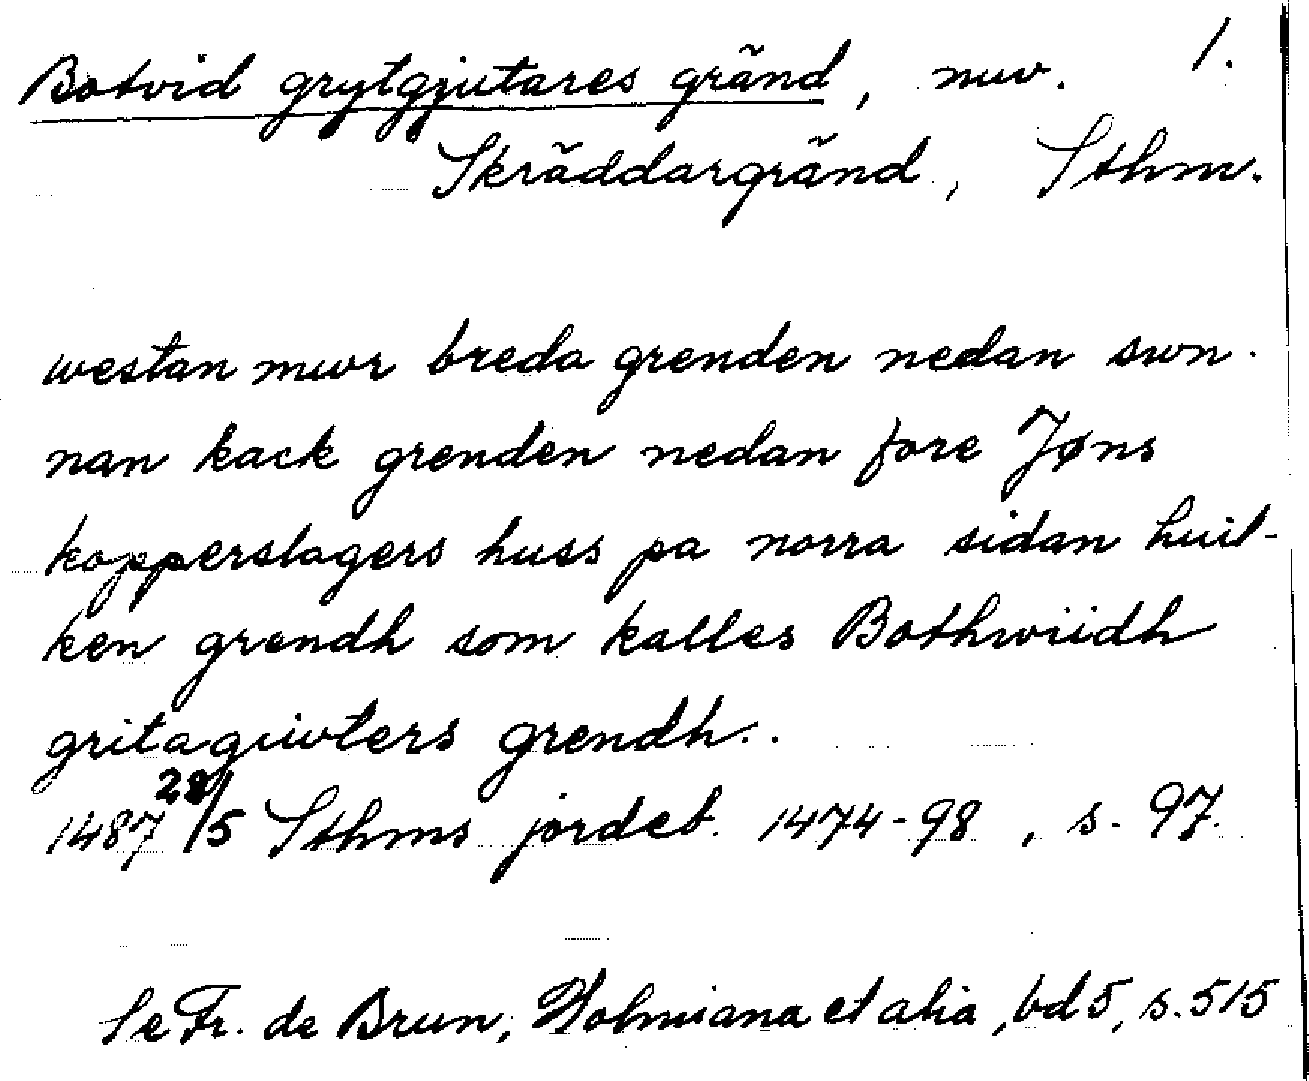 Botvid grytgjutares gränd, nuv. 1.
Skräddargränd, Sthm.
westan mwr breda grenden nedan swn-
nan kack grenden nedan fore Jøns
kopperslagers huss pa norra sidan huil-
ken grendh som kalles Bothwiidh
gritagiwters grendh..
1487 28/5 Sthms jordeb. 1474-98, s. 97.
Se Fr. de Brun, Holmiana et alia, bd 5, s. 515